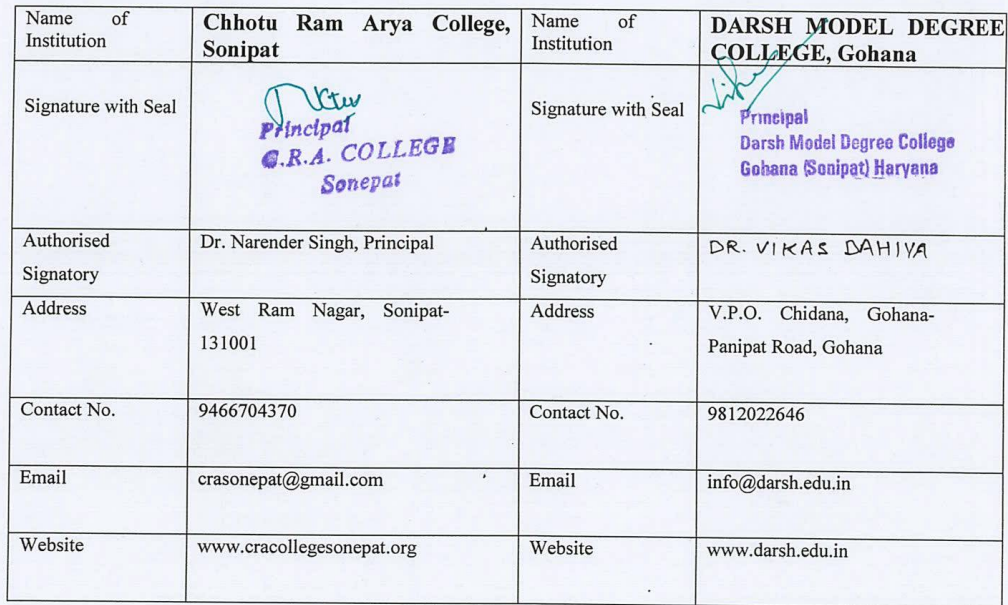 Name of Institution
Chhotu Ram Arya College, Sonipat
Name of Institution
DARSH MODEL DEGREE COLLEGE, Gohana
Signature with Seal
Principal
C.R.A. COLLEGE
Sonepat
Signature with Seal
Principal
Darsh Model Degree College
Gohana (Sonipat) Haryana
Authorised
Signatory
Dr. Narender Singh, Principal
Authorised
Signatory
DR. VIKAS DAHIYA
Address
West Ram Nagar, Sonipat-
131001
Address
V.P.O. Chidana, Gohana-
Panipat Road, Gohana
Contact No.
9466704370
Contact No.
9812022646
Email
crasonepat@gmail.com
Email
info@darsh.edu.in
Website
www.cracollegesonepat.org
Website
www.darsh.edu.in